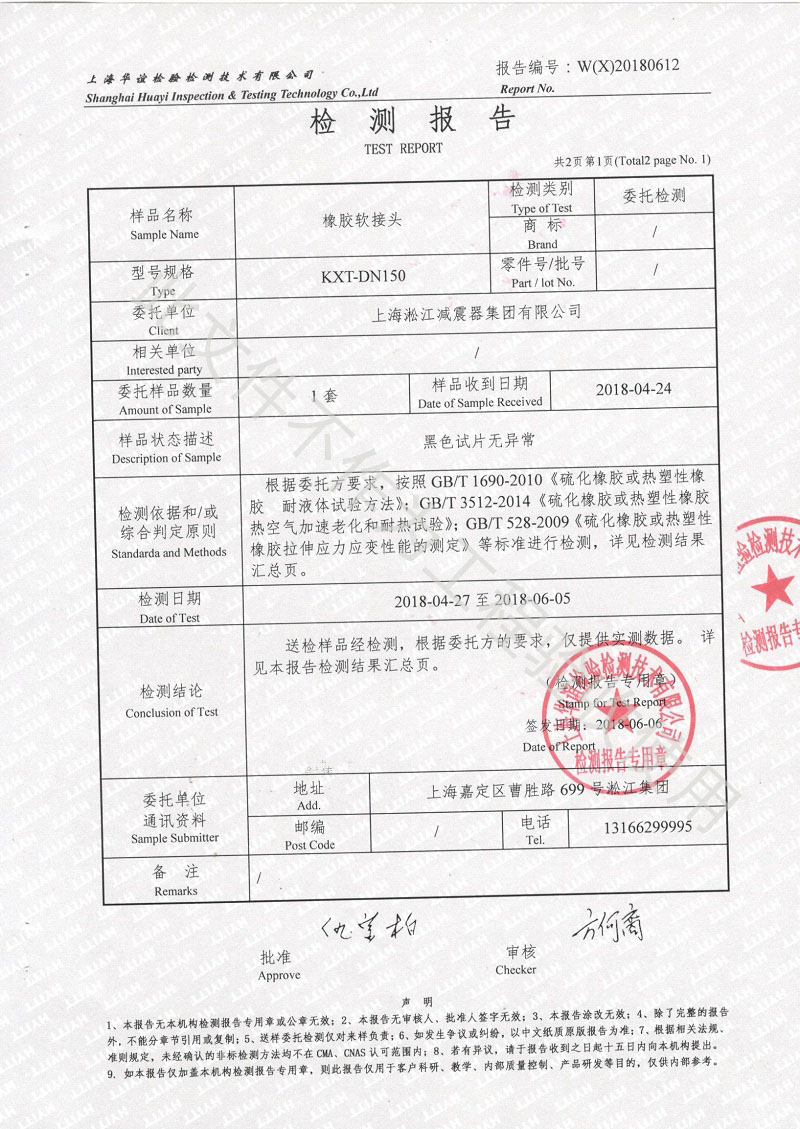 上海华谊检验检测技术有限公司
Shanghai Huayi Inspection & Testing Technology Co.,Ltd
报告编号：W(X)20180612
Report No.
检 测 报 告
TEST REPORT
共2页第1页(Total2 page No. 1)
样品名称
Sample Name
橡胶软接头
检测类别
Type of Test
委托检测
商 标
Brand
/
型号规格
Type
KXT-DN150
零件号/批号
Part / lot No.
/
委托单位
Client
上海淞江减震器集团有限公司
相关单位
Interested party
/
委托样品数量
Amount of Sample
1 套
样品收到日期
Date of Sample Received
2018-04-24
样品状态描述
Description of Sample
黑色试片无异常
检测依据和/或
综合判定原则
Standarda and Methods
根据委托方要求，按照 GB/T 1690-2010《硫化橡胶或热塑性橡
胶 耐液体试验方法》；GB/T 3512-2014《硫化橡胶或热塑性橡胶
热空气加速老化和耐热试验》；GB/T 528-2009《硫化橡胶或热塑性
橡胶拉伸应力应变性能的测定》等标准进行检测，详见检测结果
汇总页。
检测日期
Date of Test
2018-04-27 至 2018-06-05
检测结论
Conclusion of Test
送检样品经检测，根据委托方的要求，仅提供实测数据。 详
见本报告检测结果汇总页。
（检测报告专用章）
Stamp for Test Report
签发日期：2018-06-06
Date of Report
上海华谊检验检测技术有限公司
检测报告专用章
验检测技术
检测报告专
委托单位
通讯资料
Sample Submitter
地址
Add.
上海嘉定区曹胜路 699 号淞江集团
邮编
Post Code
/
电话
Tel.
13166299995
备 注
Remarks
/
批准
Approve
审核
Checker
声 明
1、本报告无本机构检测报告专用章或公章无效；2、本报告无审核人、批准人签字无效；3、本报告涂改无效；4、除了完整的报告
外，不能分章节引用或复制；5、送样委托检测仅对来样负责；6、如发生争议或纠纷，以中文纸质原版报告为准；7、根据相关法规、
准则规定，未经确认的非标检测方法均不在 CMA、CNAS 认可范围内；8、若有异议，请于报告收到之日起十五日内向本机构提出。
9. 如本报告仅加盖本机构检测报告专用章，则此报告仅用于客户科研、教学、内部质量控制、产品研发等目的，仅供内部参考。